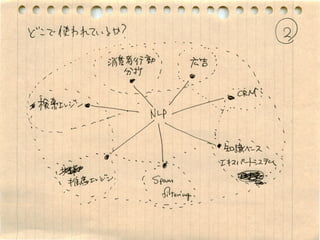 どこで使われているか?
②
消費者行動
分析
広告
検索エンジン
CRM
NLP
知識ベース
エキスパートシステム
推薦エンジン
Spam
filtering